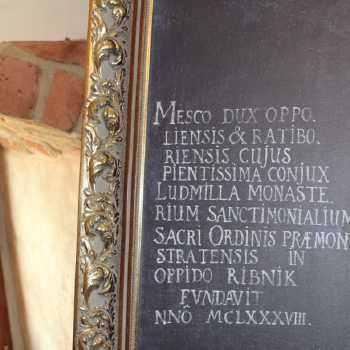 MESCO DUX OPPO.
LIENSIS & RATIBO.
RIENSIS CUJUS
PIENTISSIMA CONJUX
LUDMILLA MONASTE.
RIUM SANCTIMONIALIUM
SACRI ORDINIS PRÆMON
STRATENSIS IN
OPPIDO RIBNIK
FUNDAVIT
NNO MCLXXXVIII.